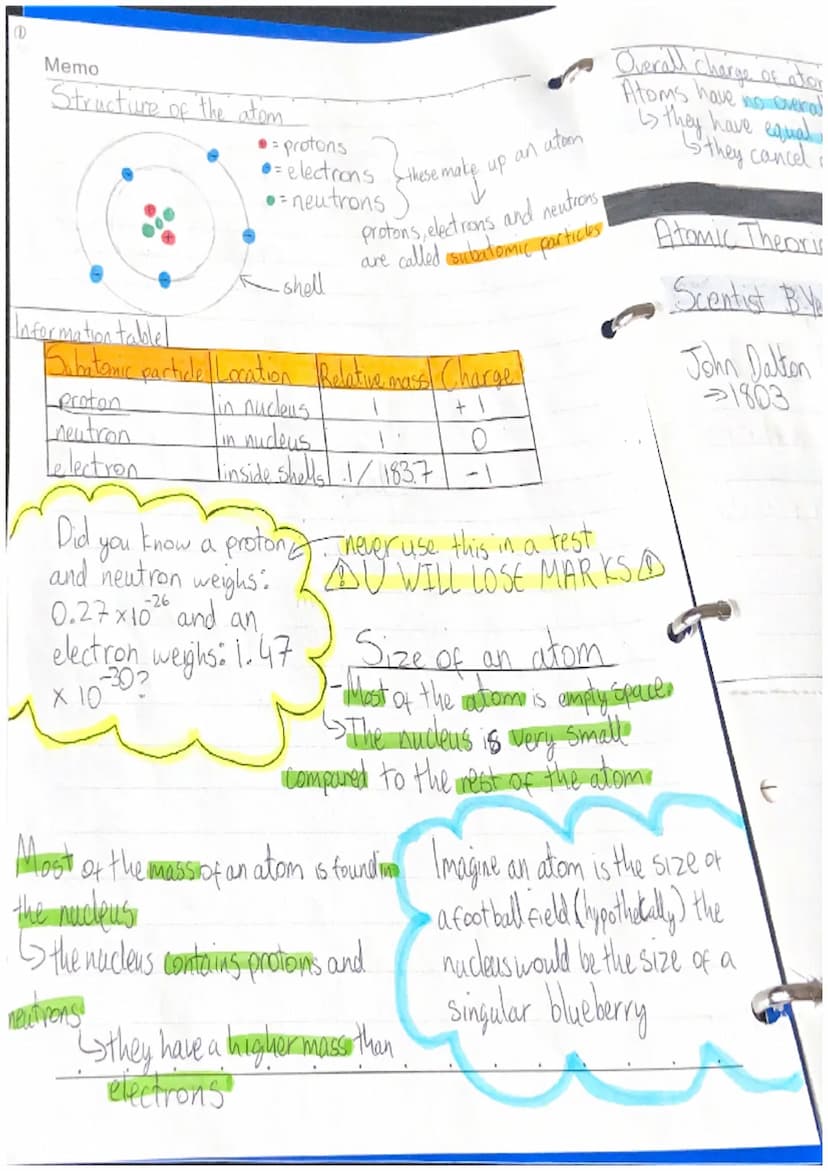 ①
Memo
Structure of the atom
= protons
= electrons
= neutrons
these make up an atom
protons, electrons and neutrons
are called subatomic particles
shell
Information table
Subatomic particle Location Relative mass Charge
proton in nucleus 1 +1
neutron in nucleus 1 0
electron inside shells 1/1837 -1
Did you know a proton
and neutron weighs:
0.27 x10-26 and an
electron weighs: 1.47
x 10-30?
never use this in a test
U WILL LOSE MARKS
Size of an atom
- Most of the atom is empty space
↳ The nucleus is very small
compared to the rest of the atom
Most of the mass of an atom is found in
the nucleus
↳ the nucleus contains protons and
neutrons
↳ they have a higher mass than
electrons
Imagine an atom is the size of
a football field (hypothetically) the
nucleus would be the size of a
singular blueberry
Overall charge of ato
Atoms have no overal
↳ they have equal
↳ they cancel
Atomic Theori
Scentist
John Dalton
⇒ 1803